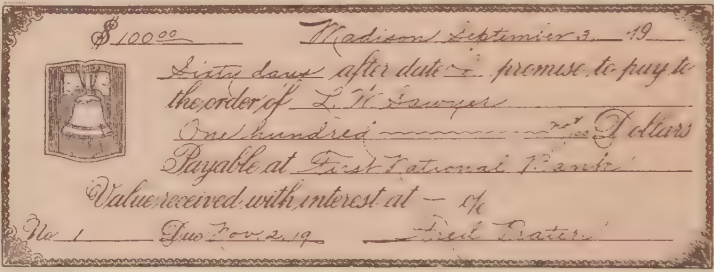 $100 00 Madison September 3 19
Sixty days after date I promise to pay to
the order of L. W. Sawyer
One hundred no/100 Dollars
Payable at First National Bank
Value received with interest at — %
No. 1 Due Nov. 2, 19 Fred Prater